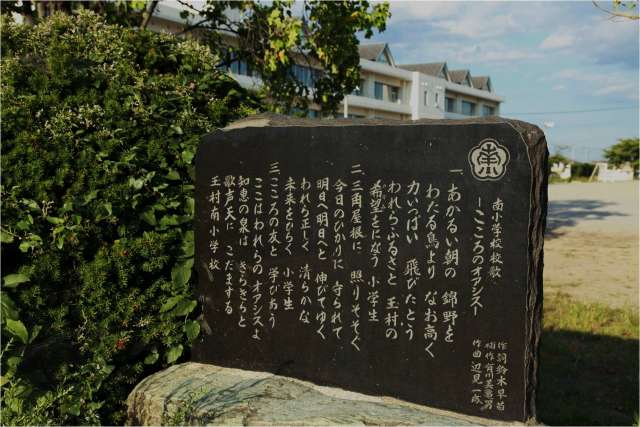 南
南小学校校歌
―こころのオアシス―
作詞 鈴木早苗
補作 有川美亀男
作曲 辺見一成
一、あかるい朝の 錦野を
わたる鳥より なお高く
力いっぱい 飛びたとう
われらふるさと 玉村の
希望をになう 小学生
二、三角屋根に 照りそそぐ
今日のひかりに 守られて
明日へ明日へと 伸びてゆく
われら正しく 清らかな
未来をひらく 小学生
三、こころの友と 学びあう
ここはわれらの オアシスよ
知恵の泉は きらきらと
歌声天に こだまする
玉村南小学校